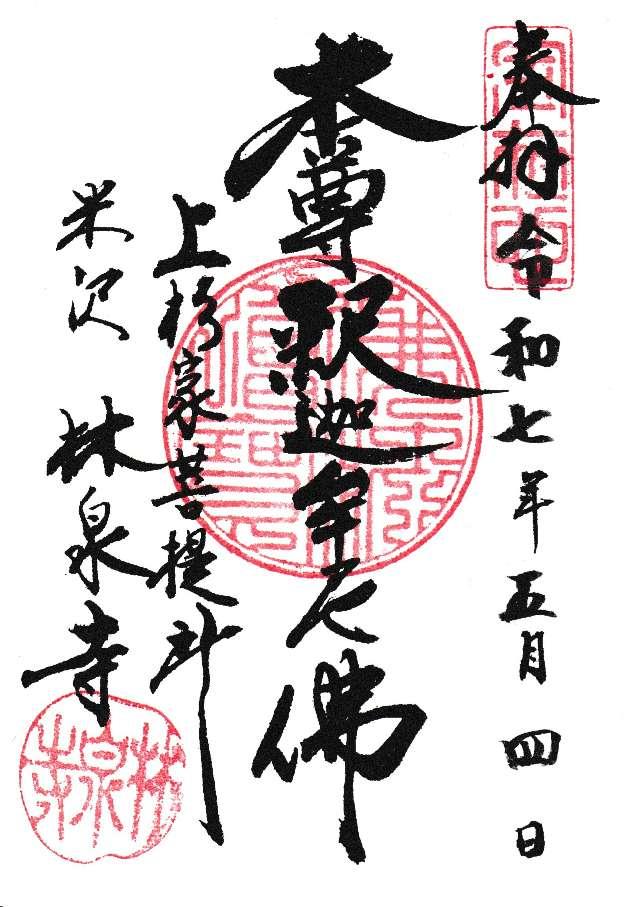 奉拝 令和七年五月四日
本尊 釈迦牟尼佛
上杉家菩提所
米沢 林泉寺
林泉寺